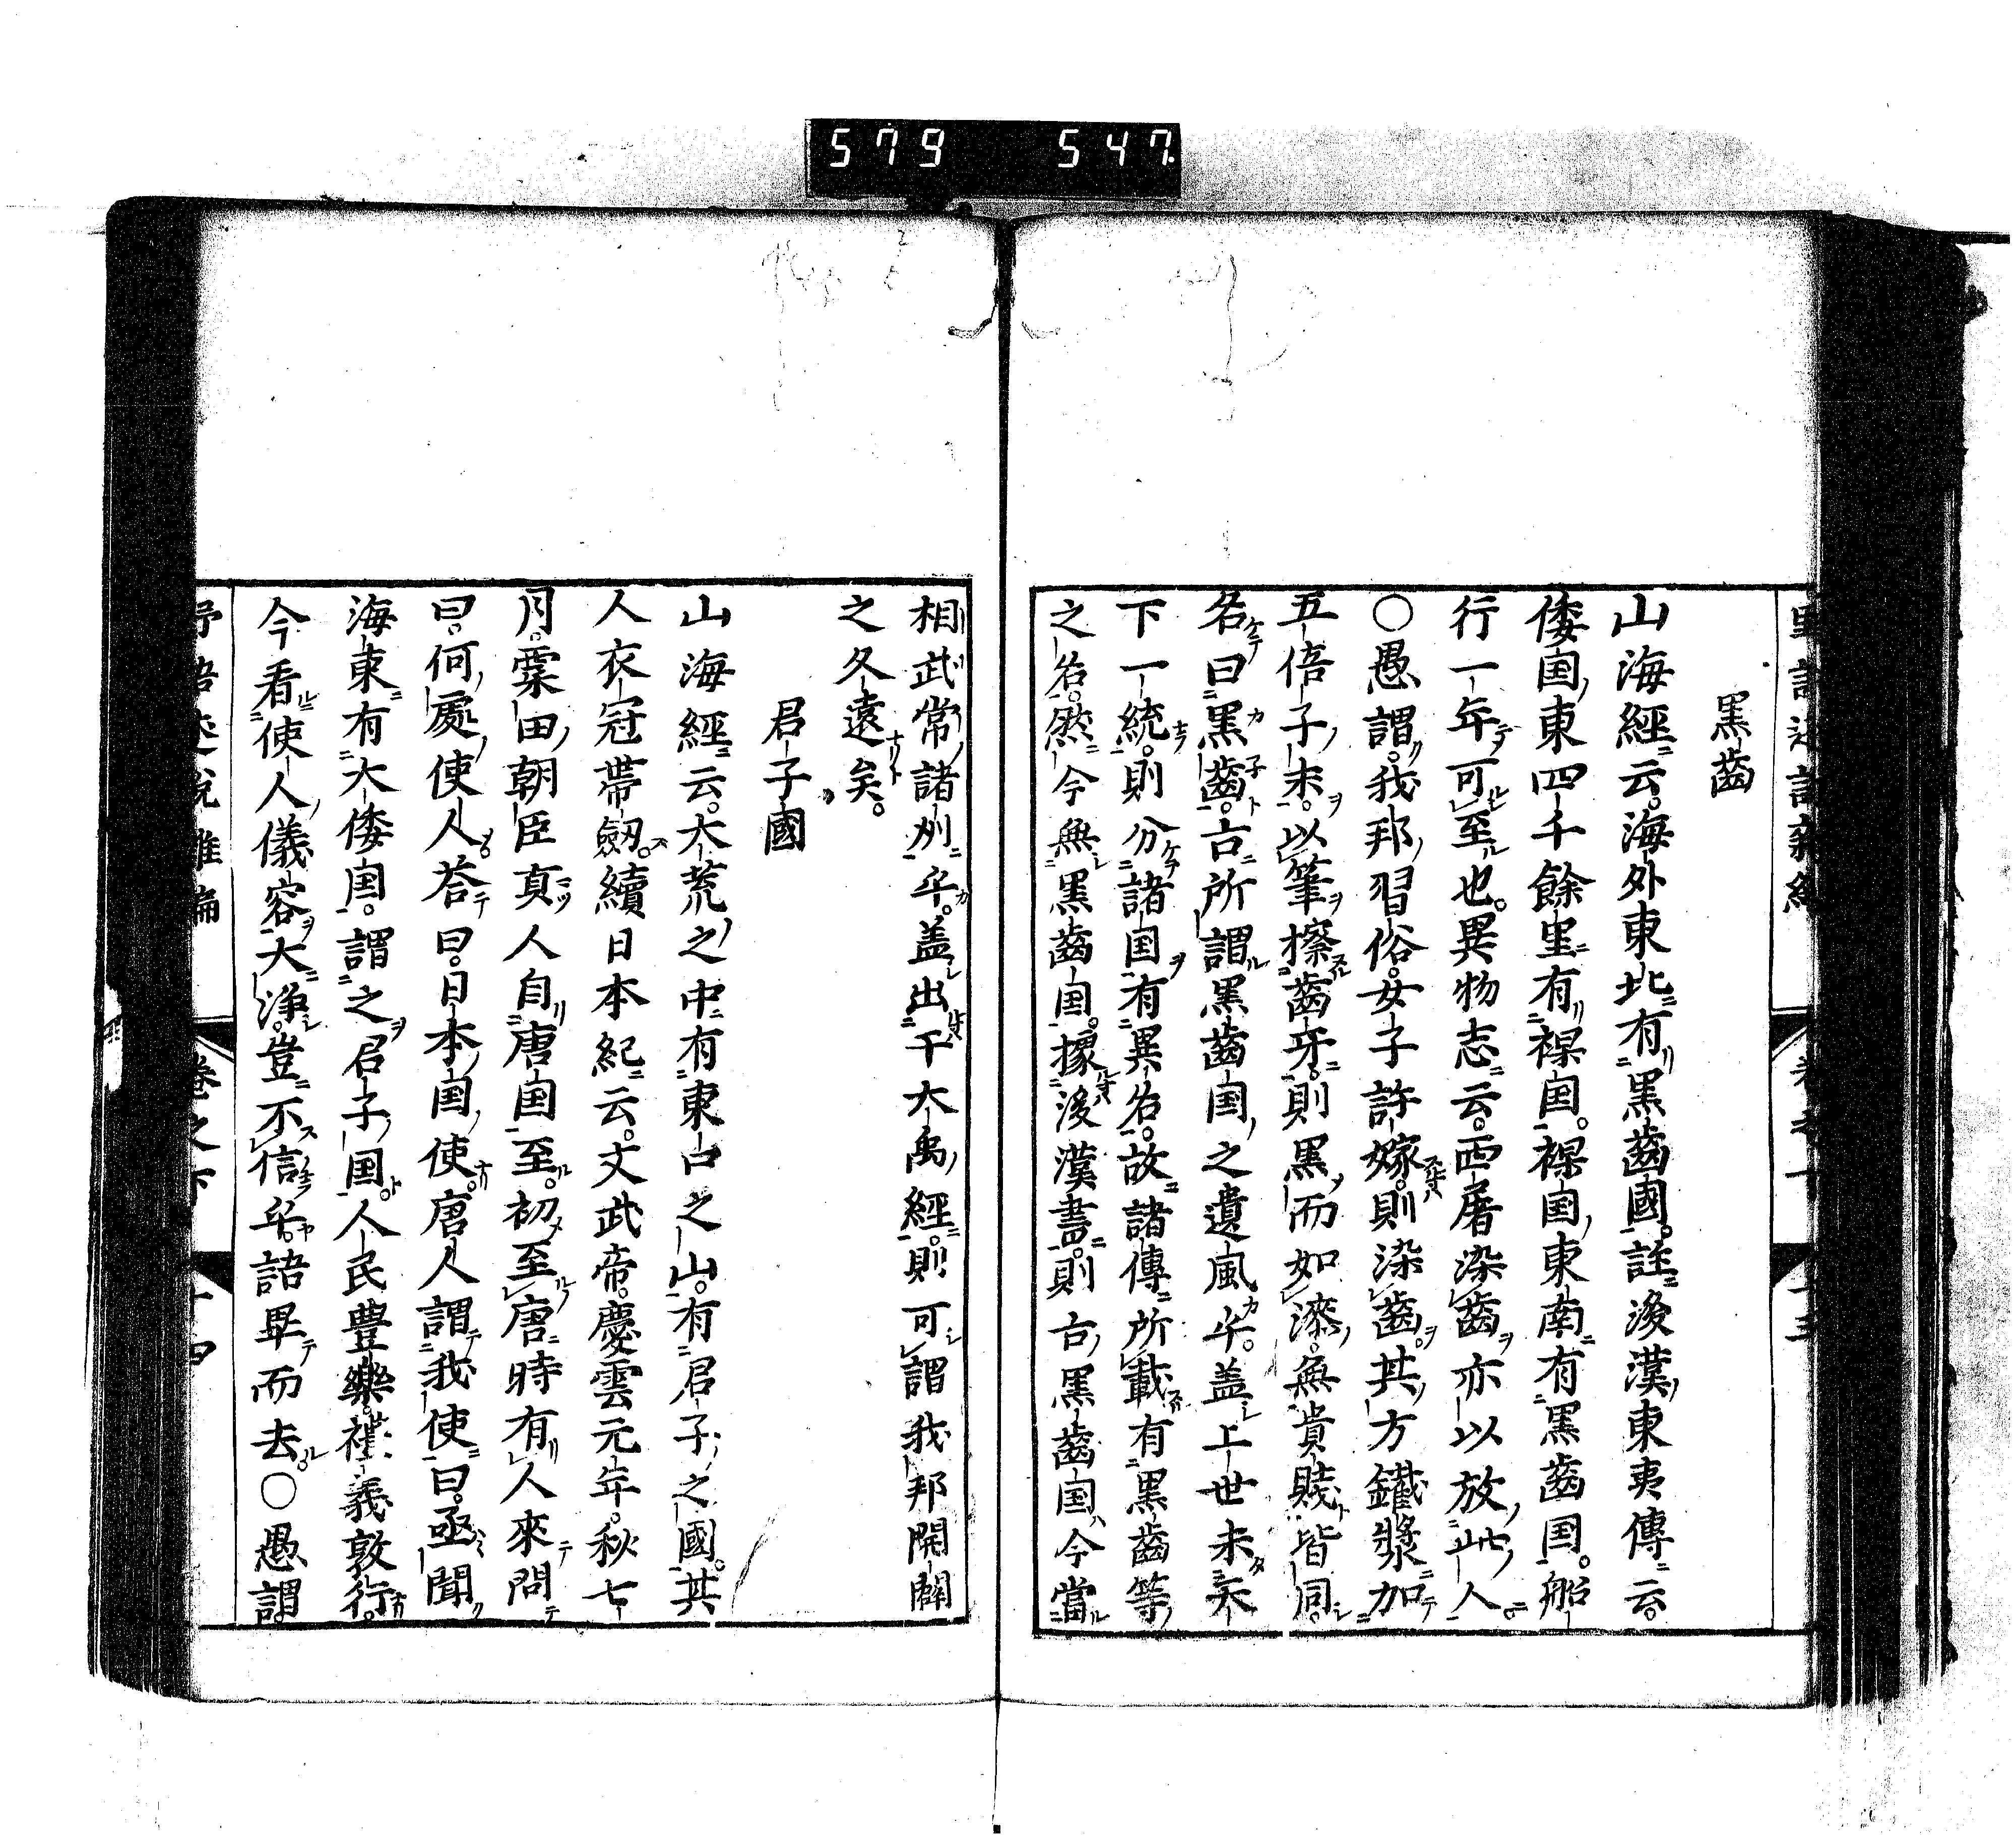 579 547
黒齒
山海經云。海外東北有黒齒國。註後漢東夷傳云。
倭国東四千餘里有裸国。裸国東南有黒齒国。船
行一年可至也。異物志云。西屠染齒亦以放此人
〇愚謂。我邦習俗女子許嫁則染齒。其方鐵漿加
五倍子末。以筆擦齒牙。則黒而如漆。無貴賤皆同。
名曰黒齒。古所謂黒齒国之遺風乎。盖上世未天
下一統。則分諸国有異名。故諸傳所載有黒齒等
之名。然今無黒齒国。據後漢書。則古黒齒国今當
相武常諸州乎。盖出于大禹經則可謂我邦開闢
之久遠矣。
君子國
山海經云。大荒之中有東口之山。有君子之國。其
人衣冠帶劔。續日本紀云。文武帝慶雲元年。秋七
月。粟田朝臣真人自唐国至。初至唐時有人來問
曰。何處使人。荅曰。日本国使。唐人謂我使曰。亟聞
海東有大倭国。謂之君子国。人民豊樂。禮義敦行。
今看使人儀容大淨。豈不信乎。語畢而去。〇愚謂
卷之下